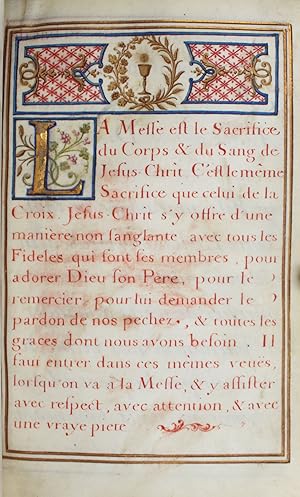 LA Messe est le Sacrifice
du Corps & du Sang de
Jesus-Chrit C'est le même
Sacrifice que celui de la
Croix. Jesus-Chrit s'y offre d'une
manière non sanglante, avec tous les
Fideles qui sont ses membres, pour
adorer Dieu son Père, pour le
remercier, pour lui demander le
pardon de nos pechez, & toutes les
graces dont nous avons besoin. Il
faut entrer dans ces mêmes veuës,
lorsqu'on va à la Messe, & y assister
avec respect, avec attention, & avec
une vraye pieté